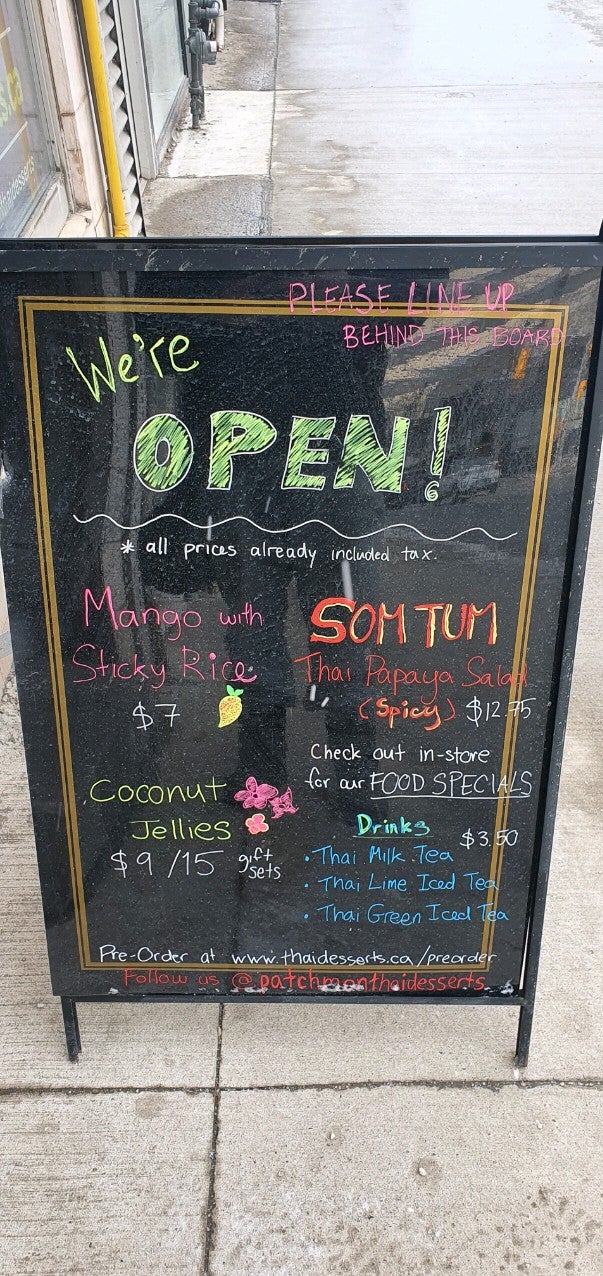 PLEASE LINE UP
BEHIND THIS BOARD
We're
OPEN!
* all prices already included tax.
Mango with
Sticky Rice
$7
SOM TUM
Thai Papaya Salad
(Spicy) $12.75
Check out in-store
for our FOOD SPECIALS
Coconut
Jellies
$9/15 gift
sets
Drinks $3.50
• Thai Milk Tea
• Thai Lime Iced Tea
• Thai Green Iced Tea
Pre-Order at www.thaidesserts.ca/preorder
Follow us @patchmonthaidesserts